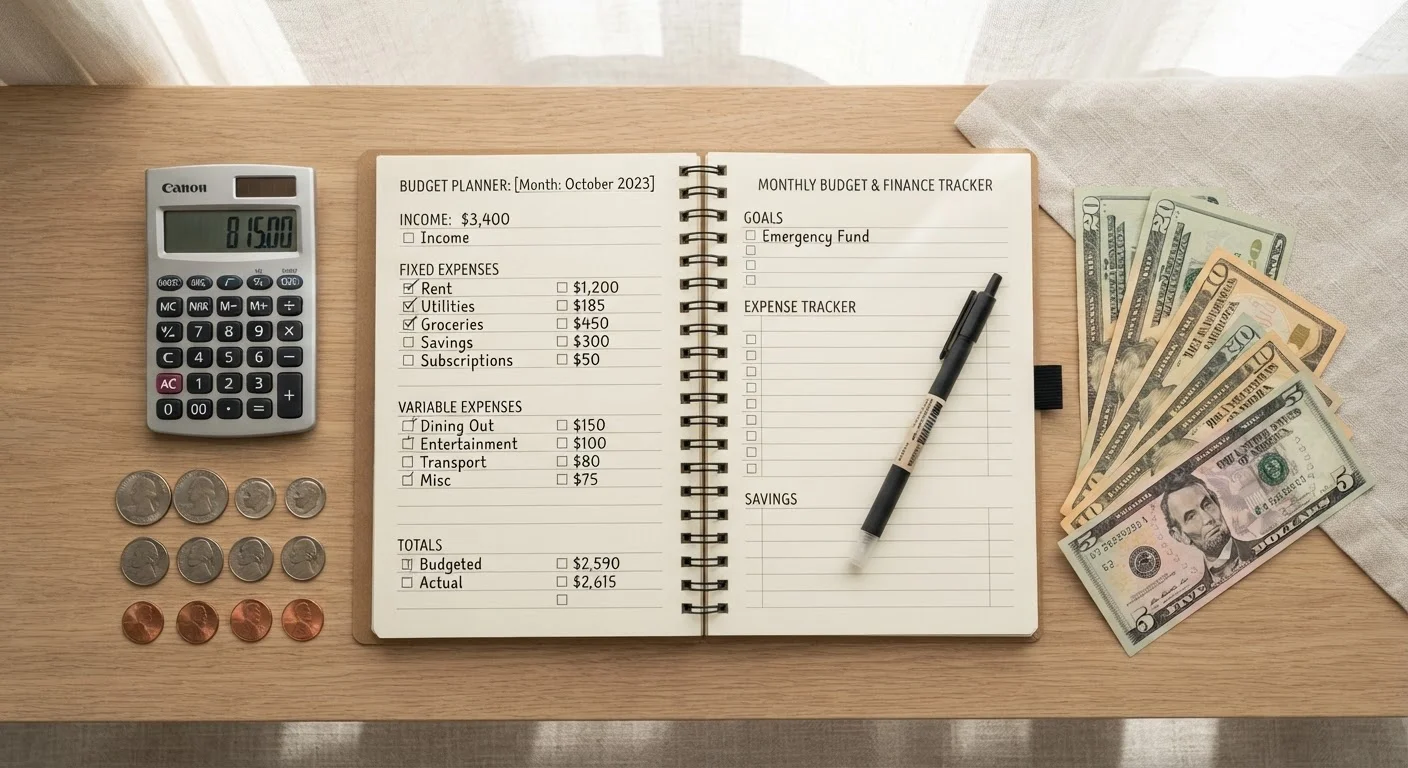 Canon
815.00
MC MR M- M+ ÷
7 8 9 ×
C 4 5 6 −
AC 1 2 3 +
0 00 · =
BUDGET PLANNER: [Month: October 2023]
INCOME: $3,400
Income
FIXED EXPENSES
Rent $1,200
Utilities $185
Groceries $450
Savings $300
Subscriptions $50
VARIABLE EXPENSES
Dining Out $150
Entertainment $100
Transport $80
Misc $75
TOTALS
Budgeted $2,590
Actual $2,615
MONTHLY BUDGET & FINANCE TRACKER
GOALS
Emergency Fund
EXPENSE TRACKER
SAVINGS
20
20
10
20
10
5
5
5
5